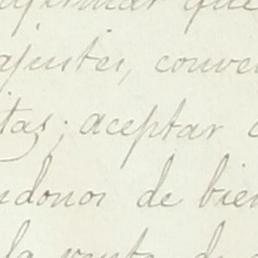 que
ajustes, conve
tas; aceptar
ndonos de bien
la venta de